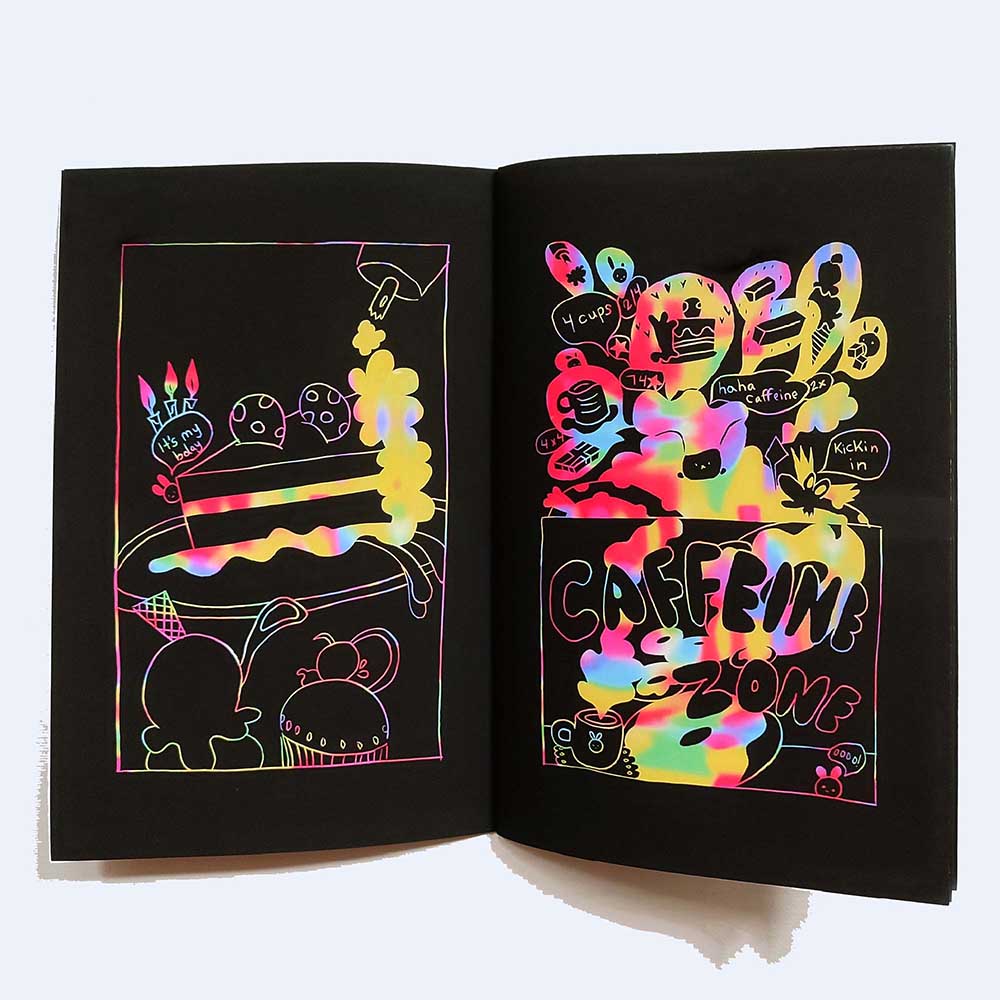 It's my
bday
4 cups
2/4
74x
haha
caffeine
2x
4x4
Kickin
in
CAFFEINE
ZONE
oooo!